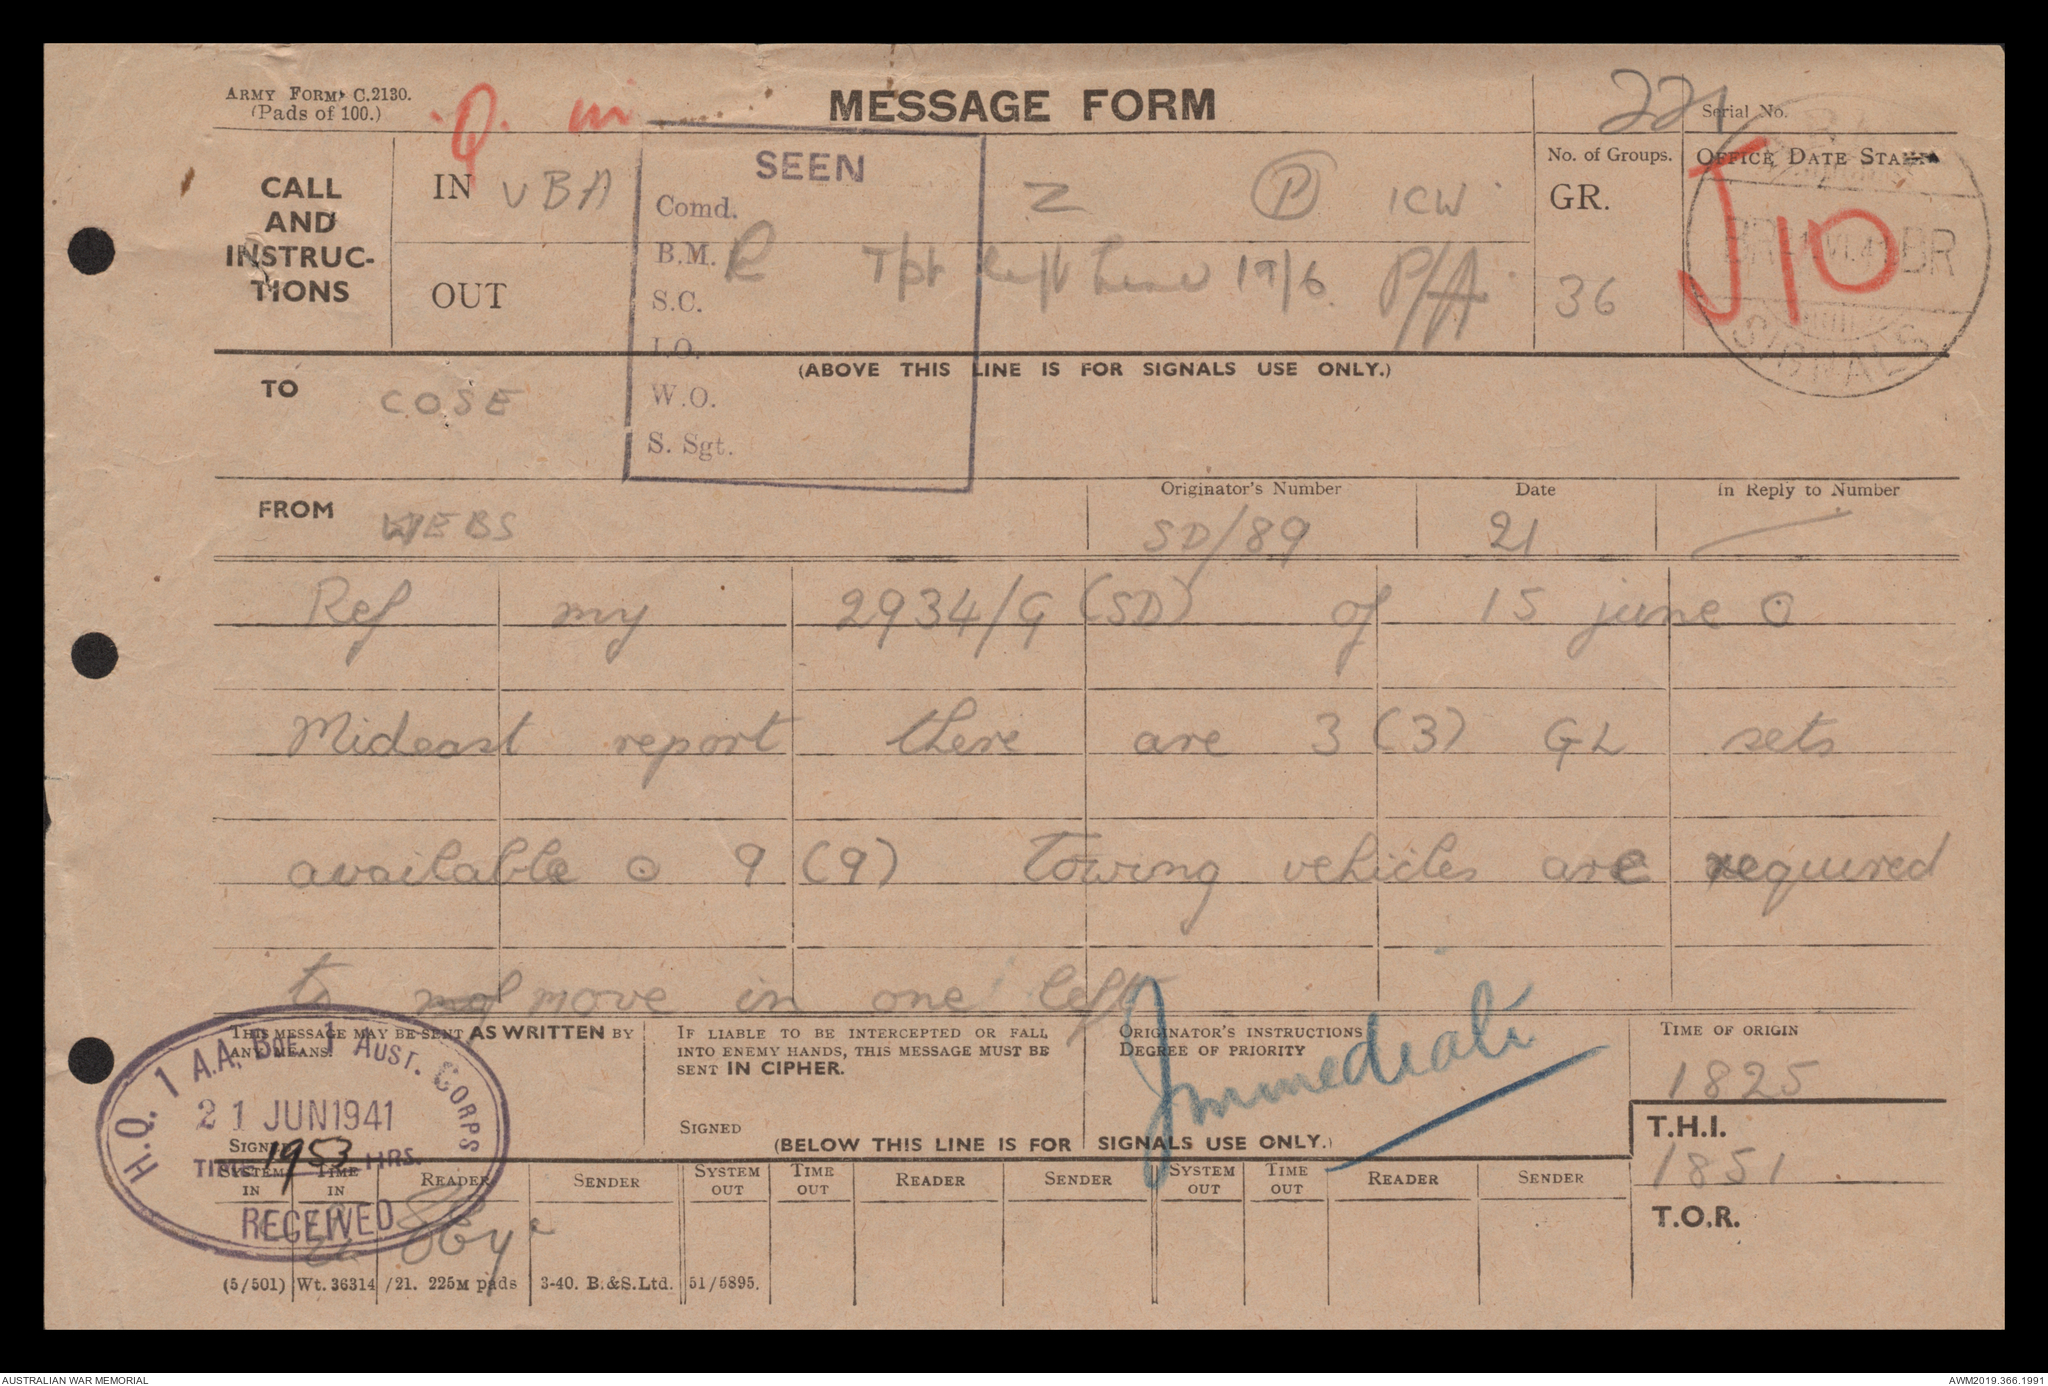 ARMY FORM C.2130.
(Pads of 100.)
Q. m
MESSAGE FORM
221
Serial No.
CALL
AND
INSTRUC-
TIONS
IN VBA
OUT
SEEN
Comd.
B.M. R
S.C.
I.O.
W.O.
S. Sgt.
Z (P) ICW
Tpt left here 19/6. P/A
No. of Groups.
GR.
36
OFFICE DATE STAMP
J10
BR VI.41 BR
SIGNALS
(ABOVE THIS LINE IS FOR SIGNALS USE ONLY.)
TO COSE
FROM WEBS
Originator's Number
SD/89
Date
21
In Reply to Number
Ref my 2934/G (SD) of 15 june O
Mideast report there are 3 (3) GL sets
available O 9 (9) Towing vehicles are required
to move in one left
THIS MESSAGE MAY BE SENT AS WRITTEN BY
ANY MEANS.
SIGNED
IF LIABLE TO BE INTERCEPTED OR FALL
INTO ENEMY HANDS, THIS MESSAGE MUST BE
SENT IN CIPHER.
SIGNED
ORIGINATOR'S INSTRUCTIONS
DEGREE OF PRIORITY
Immediate
TIME OF ORIGIN
1825
T.H.I.
1851
T.O.R.
(BELOW THIS LINE IS FOR SIGNALS USE ONLY.)
H.Q. 1 A.A. BDE. 1 AUST. CORPS
21 JUN 1941
TIME 1953 HRS.
RECEIVED
SYSTEM IN TIME IN READER SENDER SYSTEM OUT TIME OUT READER SENDER SYSTEM OUT TIME OUT READER SENDER
(5/501) Wt. 36314/21. 225M pads 3-40. B.&S.Ltd. 51/5895.
AUSTRALIAN WAR MEMORIAL
AWM2019.366.1991